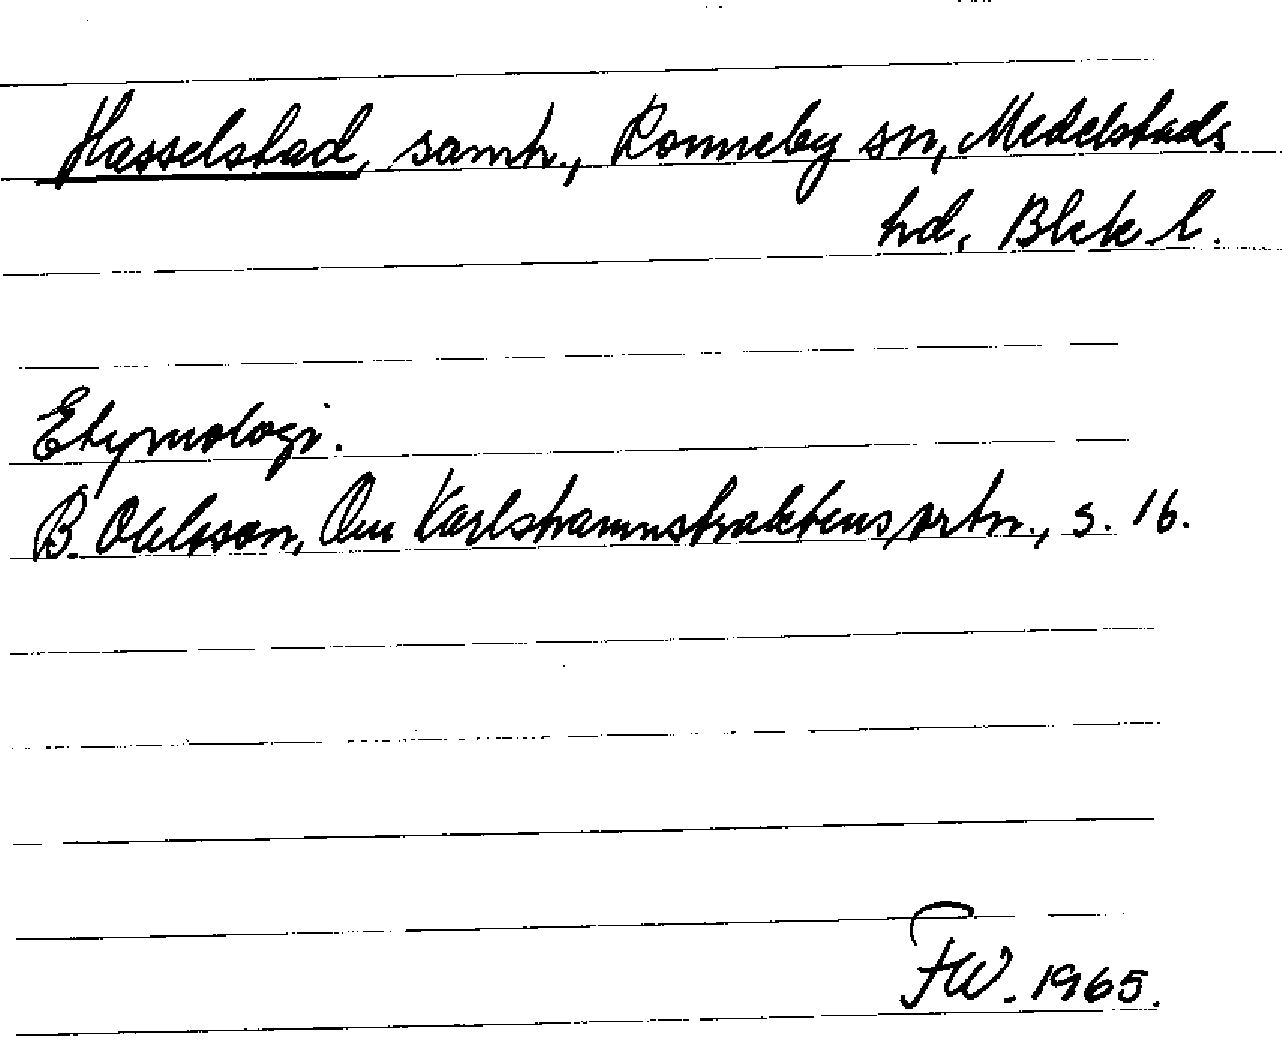 Hasselstad, samh., Ronneby sn, Medelstads
hd, Blek l.
Etymologi.
B. Ohlsson, Om Karlshamnstraktens ortn., s. 16.
FW. 1965.